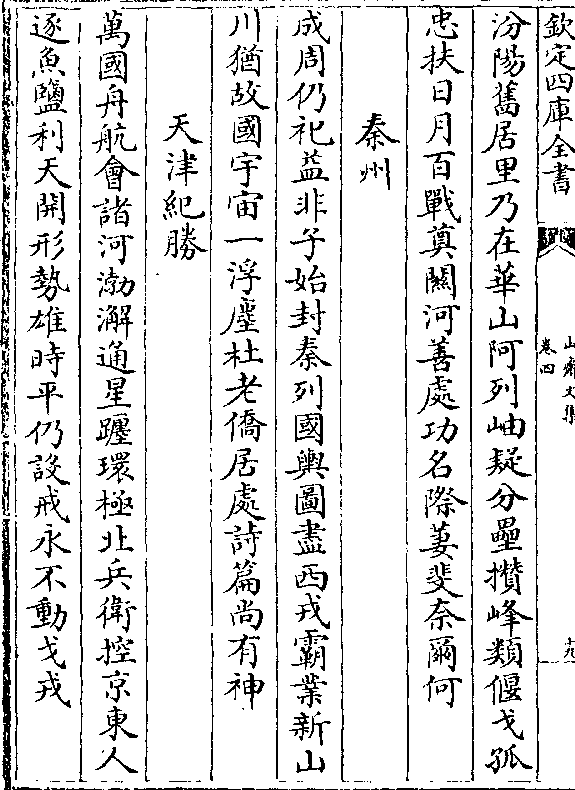 欽定四庫全書
山齋文集
卷四
十九
汾陽舊居里乃在華山阿列岫疑分壘攅峰類偃戈孤
忠扶日月百戰奠關河善處功名際萋斐奈爾何
秦州
成周仍祀益非子始封秦列國輿圖盡西戎霸業新山
川猶故國宇宙一浮塵杜老僑居處詩篇尚有神
天津紀勝
萬國舟航會諸河渤澥通星躔環極北兵衛控京東人
逐魚鹽利天開形勢雄時平仍設戒永不動戈戎